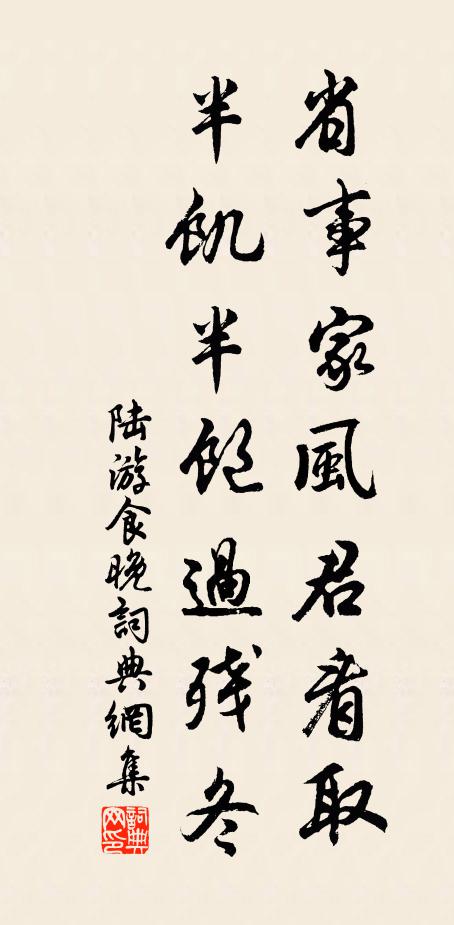 省事家風君看取
半飢半飽過殘冬
陆游食晚詞典網集
詞典网印